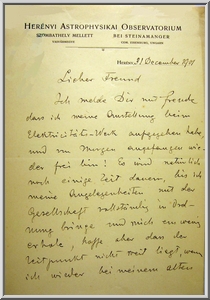 HERÉNYI ASTROPHYSIKAL OBSERVATORIUM
SZOMBATHELY MELLETT BEI STEINAMANGER
Herény 31 December 1901
Lieber Freund
Ich melde Dir mit Freude
dass ich meine Anstellung beim
Elektricitäts-Werk aufgegeben habe
und von morgen angefangen wie-
der frei bin! Es wird natürlich
noch einige Zeit dauern, bis ich
meine Angelegenheiten mit der
Gesellschaft vollständig in Ord-
nung bringe und mich ein wenig
erhole, hoffe aber dass der
Zeitpunkt nicht weit liegt, wenn
ich wieder bei meinem alten